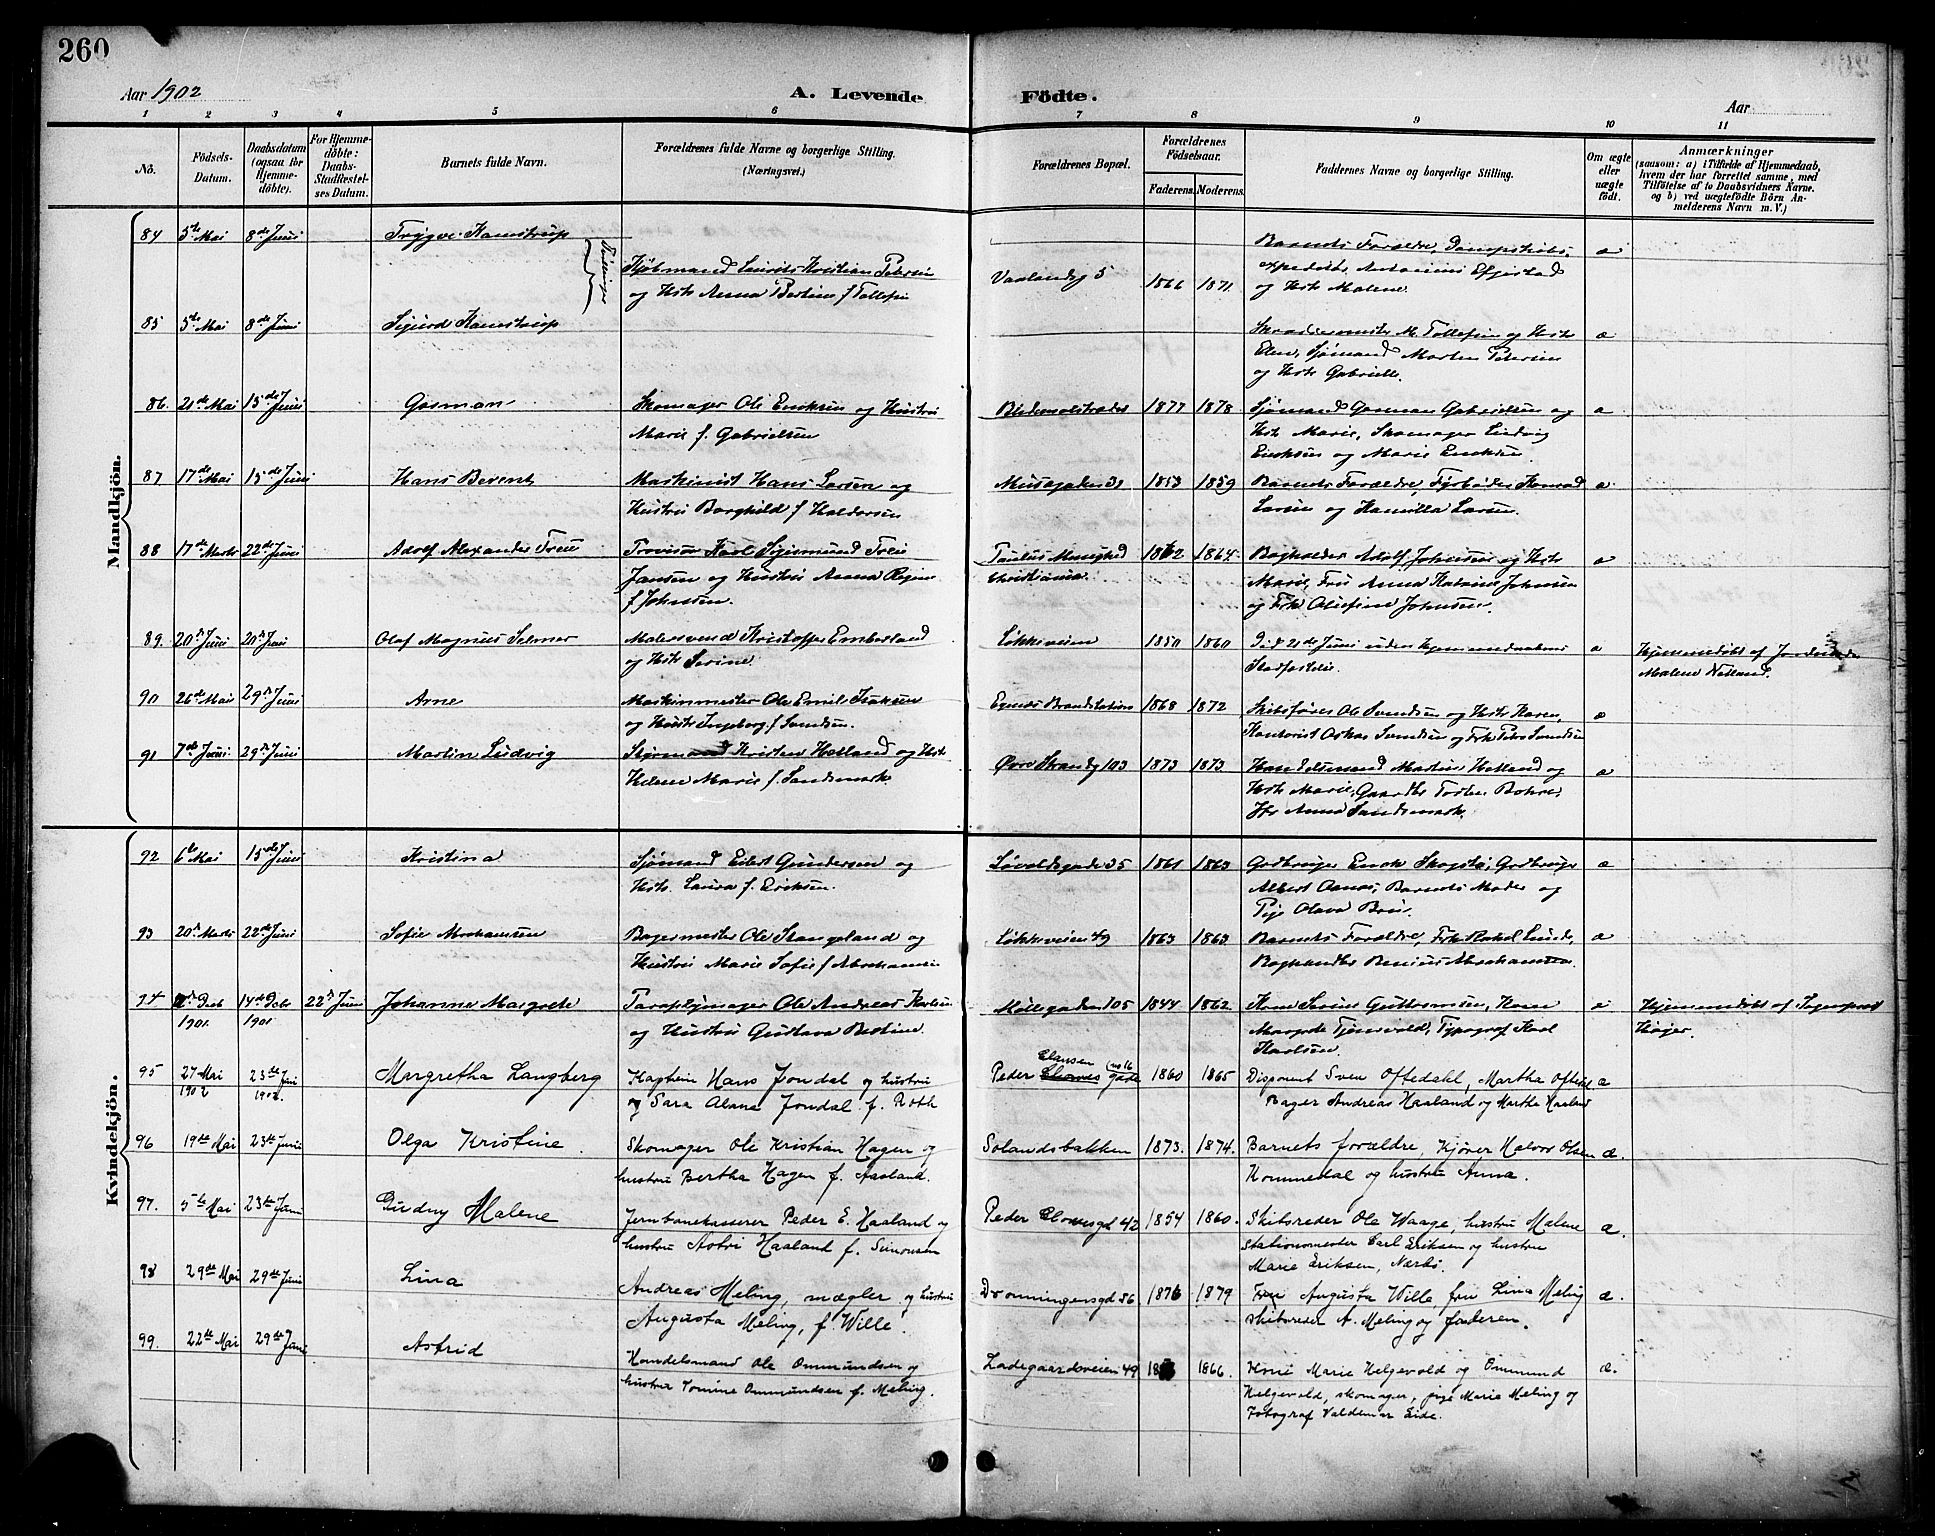 260
Aar 1902
A. Levende Födte.
Aar
1 2 3 4 5 6 7 8 9 10 11
No.
Födsels-Datum.
Daabsdatum (ogsaa for Hjemme-döbte).
For Hjemme-döbte: Daabs-Stadfæstel-ses Datum.
Barnets fulde Navn.
Forældrenes fulde Navne og borgerlige Stilling. (Næringsvei.)
Forældrenes Bopæl.
Forældrenes Födselsaar.
Faderens. Moderens.
Faddernes Navne og borgerlige Stilling.
Om ægte eller uægte födt.
Anmærkninger
(saasom: a) i Tilfælde af Hjemmedaab, hvem der har forrettet samme, med Tilföielse af to Daabsvidners Navne, og b) ved uægtefödte Börn Anmelderens Navn m. V.)
Mandkjön.
84 5te Mai 8de Juni Trygve Kamstrup
Tvillinger
Kjøbmand Laurits Kristian Petersen
og Hstr Anna Bertine f Tollefsen
Vaalandsg 5 1866 1871
Barnets Forældre, Dampskibs-
expeditør Antonius Efjestad
og Hstr Malene.
æ
85 5te Mai 8de Juni Sigurd Kamstrup
M. Tollefsen og Hstr
Elen, Sjømand Morten Petersen
og Hstr Gabrielle.
æ
86. 21de Mai 15de Juni Gosman
Skomager Ole Eriksen og Hustru
Marie f. Gabrielsen
1877 1878
Sjømand Gosman Gabrielsen og
Hstr Marie, Skomager Ludvig
Eriksen og Marie Eriksen
æ
87 17de Mai 15de Juni Hans Berent
Maskinist Hans Larsen og
Hustru Borghild f Haldorsen
Musegaden 31 1853 1859
Barnets Forældre, Fyrbøder Konrad
Larsen og Kamilla Larsen.
æ
88 17de Marts 22de Juni Adolf Alexander Treu
Provisor Karl Sigismund Treu
Jansen og Hustru Anna Regine
f Johnsen.
Paulus Menighed
Christiania. 1862 1864.
Bogholder Adolf Johnsen og Hstr
Marie, Fru Anna Katrine Johnsen
og Frk Olufine Johnsen.
æ
89. 20de Juni 20de Juni Olaf Magnus Selmer
Malersvend Kristoffer Emberland
og Hstr Serine.
Løkkeveien 1850 1860
Død 21de Juni uden Hjemmedaabens
Stadfæstelse.
æ
Hjemmedøbt af Jordemoder
Malene Netland.
90 26de Mai 29de Juni Arne
Maskinmester Ole Emil Isaksen
og Hustr Ingeborg f Svendsen.
Egenæs Brandstation 1868 1872
Skibsfører Ole Svendsen og Hstr Karen,
Kontorist Oskar Svendsen og Frk Petra Svendsen
æ
91 7de Juni 29de Juni Martin Ludvig
Styrmand Kristen Helland og Hstr
Helene Marie f. Sandsmark.
Øvre Strandg 103 1873 1873
Handelsmand Martin Helland og
Hstr Marie, Gaardbr Torsten Bohre,
Anna Sandsmark.
æ
Kvindekjön.
92 6te Mai 15de Juni Kristina
Sjømand Edert Gundersen og
Hstr. Laura f. Eriksen.
Løvoldsgade 25 1861 1863
Gdbruger Enok Skogstø, Gdbruger
Albert Aanæs, Barnets Moder og
Pige Olava Brui.
æ
93 20de Marts 22de Juni Sofie Abrahamsen
Bagermester Ole Stangeland og
Hustru Marie Sofie f Abrahamsen
Løkkeveien 49 1863 1863
Barnets Forældre, Frk Rakel Lunde,
Boghandler Benius Abrahamsen.
æ
94 Decb 1901. 14de Decbr 1901 22de Juni Johanne Margrete
Paraplymager Ole Andreas Karlsen
og Hustru Gustava Bertine.
Møllegaden 105 1844 1862.
Kone Serine Guttormsen, Kone
Margrete Tjensvold, Typograf Karl
Karlsen.
æ
Hjemmedøbt af Sogneprest
Høyer.
95 27 Mai 1902 23de Juni 1902. Margretha Langberg
Kaptein Hans Jondal og hustru
Sara Alana Jondal f. Roth
Peder Clausen gade (no 16 1860 1865
Disponent Sven Oftedahl, Martha Oftedal
Bager Andreas Haaland og Martha Haaland
æ
96 19de Mai 23de Juni Olga Kristine.
Skomager Ole Kristian Hagen og
hustru Bertha Hagen f. Aasland.
Solandsbakken 1873. 1874.
Barnets forældre, Kjører Halvor Olsen
Kommedal og hustru Anna.
æ.
97. 5te Mai 23de Juni Gudny Malene
Jernbanekasserer Peder E. Haaland og
hustru Astri Haaland f. Simonsen
Peder Clausgd 42 1854 1860.
Skibsreder Ole Waage, hustru Malene
Stationsmester Carl Eriksen og hustru
Marie Eriksen, Nærbø.
æ.
98 29de Mai 29de Juni Lina
Andreas Meling, mægler og hustru
Augusta Meling, f. Wille.
Dronningensgd 56 1876 1879
Fru Augusta Wille, fru Lina Meling
skibsreder A. Meling og faderen.
æ.
99. 22de Mai 29de Juni Astrid
Handelsmand Ole Ommundsen og
hustru Tomine Ommundsen f. Meling.
Ladegaardsveien 49 1866.
Kone Marie Helgevold og Ommund
Helgevold, skomager, pige Marie Meling og
Fotograf Valdemar Eide.
æ.